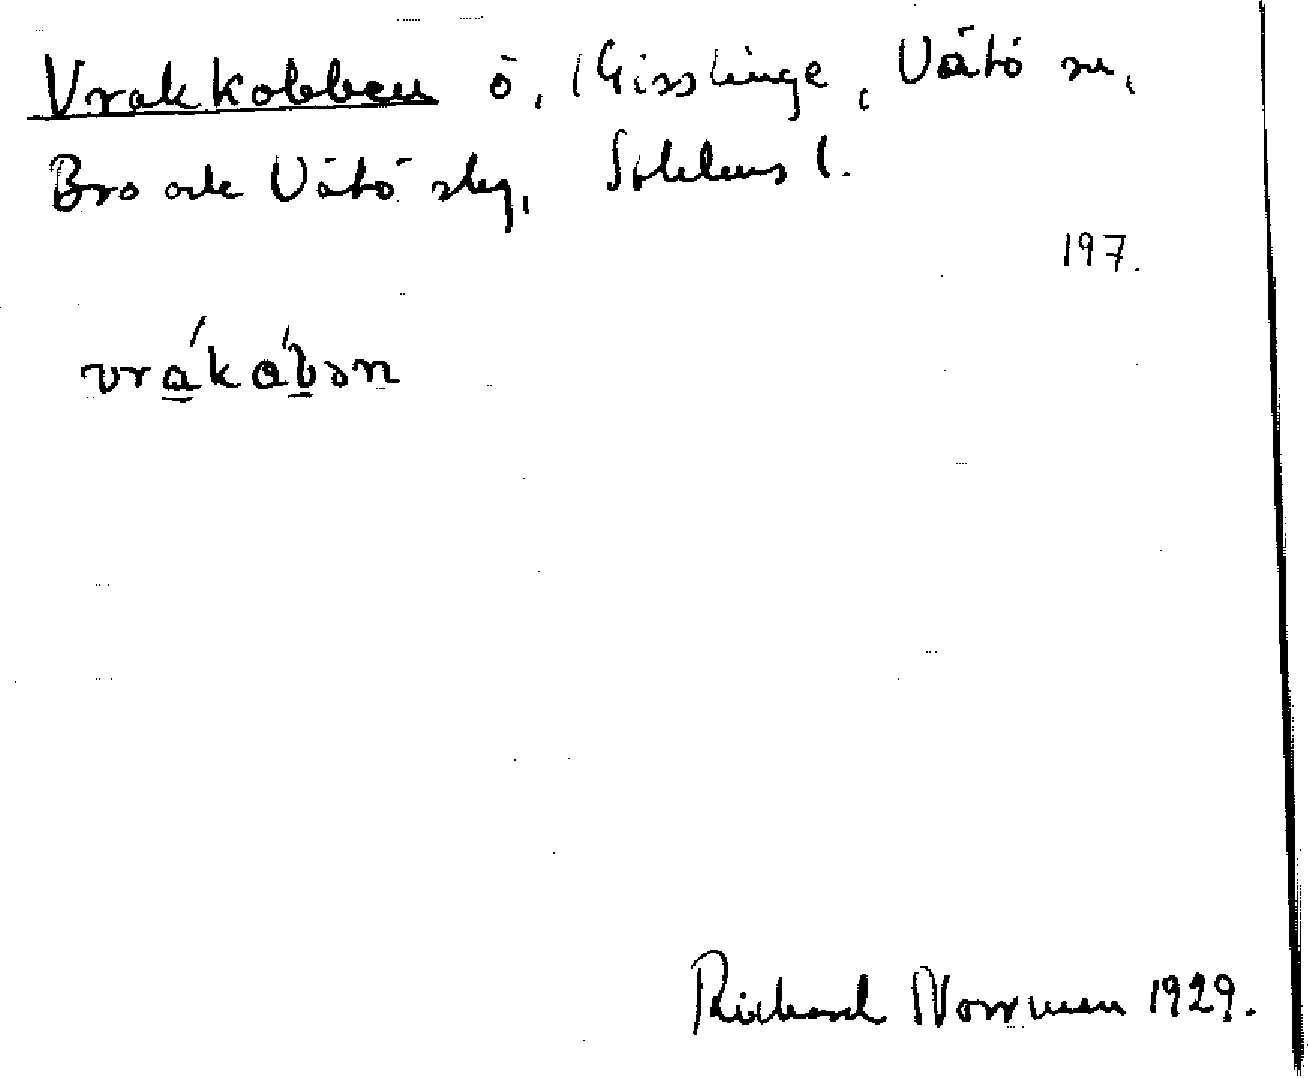 Vrakkobben ö, (Gisslinge, Vätö sn,
Bro och Vätö skg, Sthlms l.
197.
vrákåbən
Richard Norrman 1929.